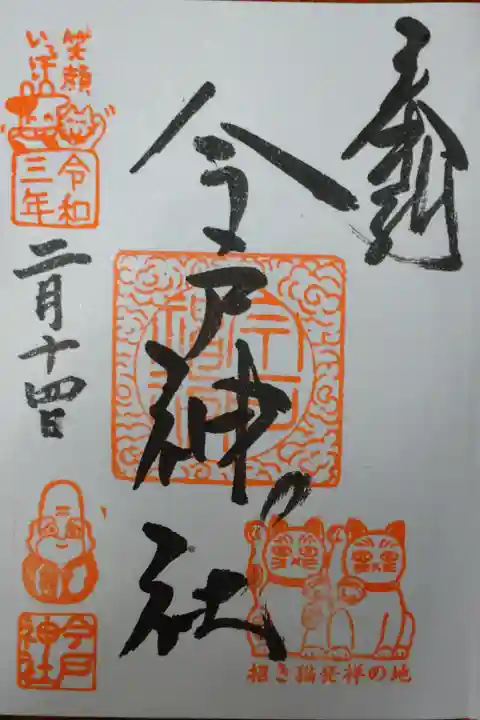 奉拝
今戸神社
今戸神社
招き猫発祥の地
笑顔
いっぱい
令和
三年
二月十四日
今戸
神社